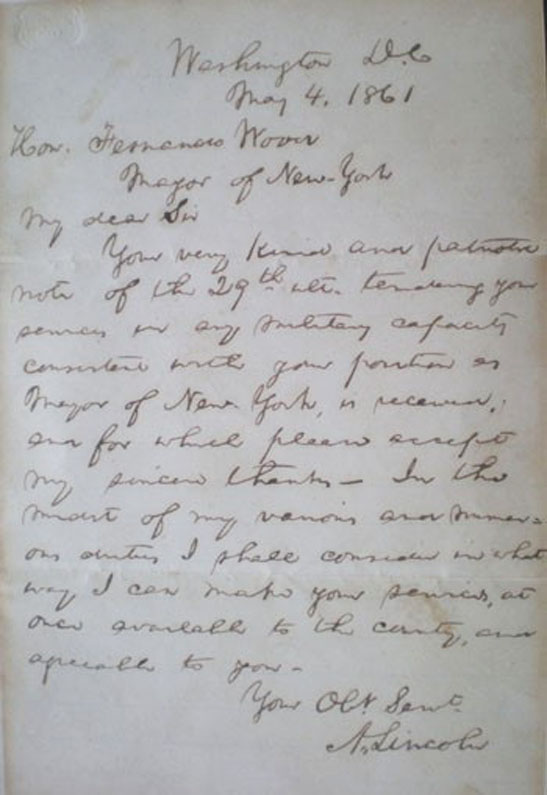 Washington D.C
May 4, 1861
Hon. Fernando Wood
Mayor of New-York
My dear Sir
Your very kind and patriotic
note of the 29th ult. tendering your
services in any military capacity
consistent with your position as
Mayor of New-York, is received,
and for which please accept
my sincere thanks— In the
midst of my various and numer=
ous duties I shall consider in what
way I can make your services, at
once available to the county, and
agreeable to you—
Your Obt. Servt.
A. Lincoln